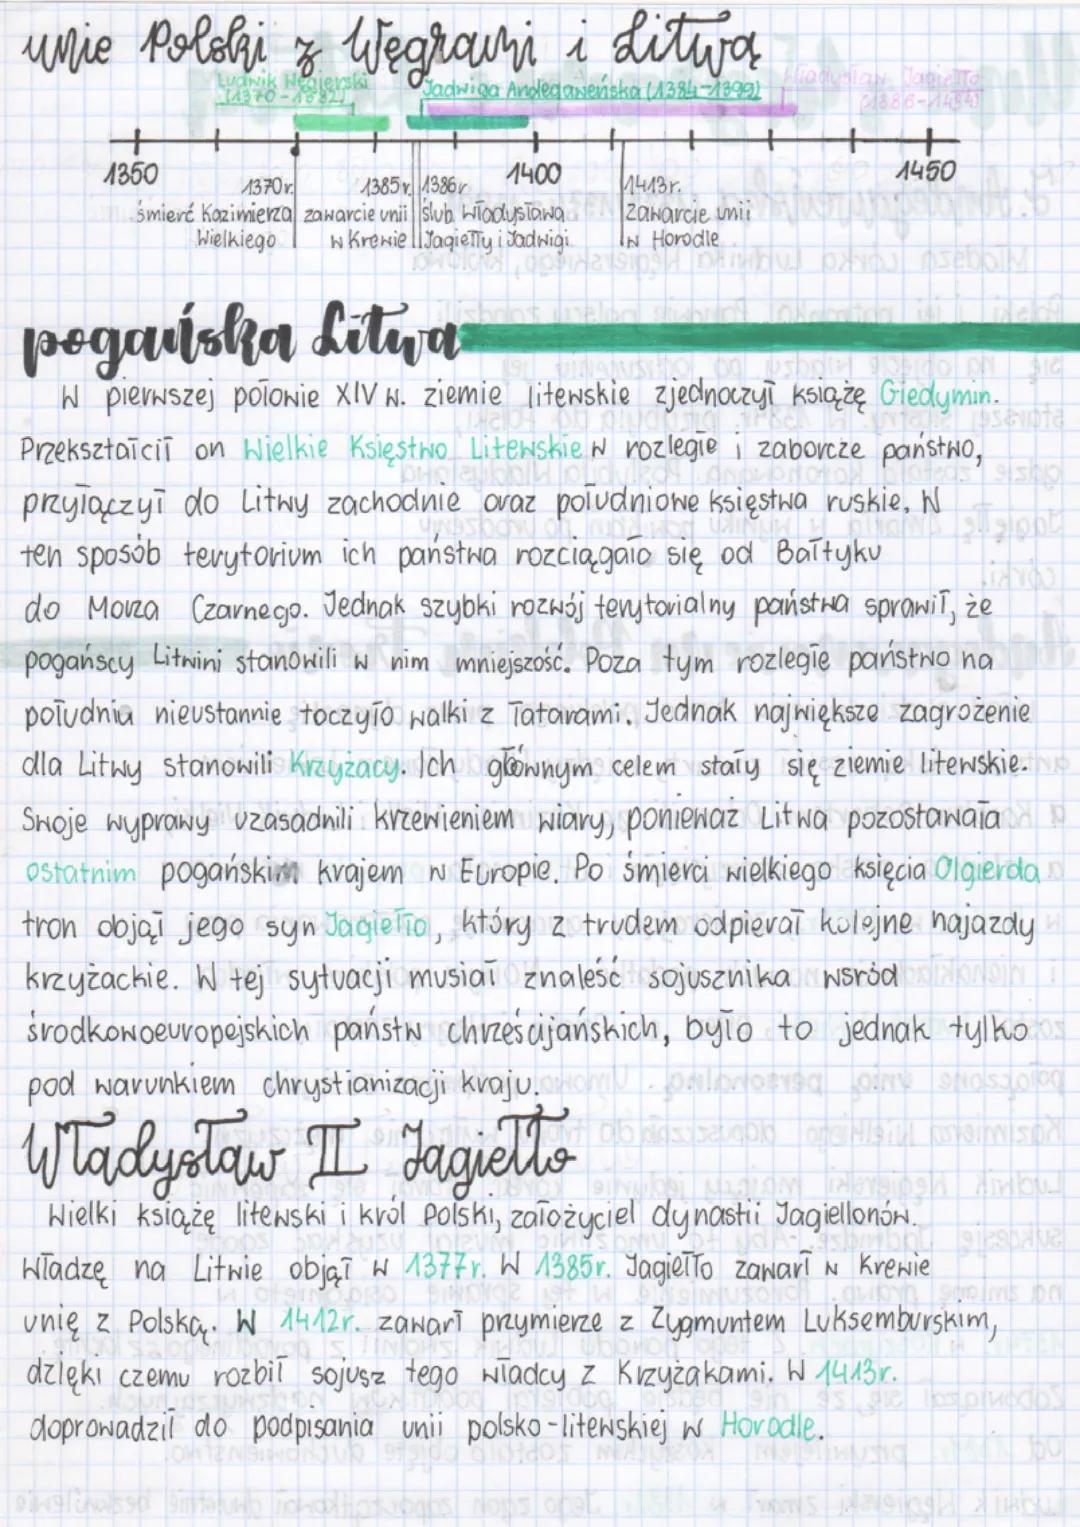 unie Polski z Węgrami i Litwą
Ludwik Węgierski
(1370-1382)
Jadwiga Andegaweńska (1384-1399)
Władysław Jagiełło
(1386-1434)
1350
1400
1450
1370r.
śmierć Kazimierza
Wielkiego
1385r.
zawarcie unii
w Krewie
1386r.
ślub Władysława
Jagiełły i Jadwigi
1413r.
zawarcie unii
w Horodle
pogańska Litwa
W pierwszej połowie XIV w. ziemie litewskie zjednoczył książę Giedymin.
Przekształcił on Wielkie Księstwo Litewskie w rozległe i zaborcze państwo,
przyłączył do Litwy zachodnie oraz południowe księstwa ruskie. W
ten sposób terytorium ich państwa rozciągało się od Bałtyku
do Morza Czarnego. Jednak szybki rozwój terytorialny państwa sprawił, że
pogańscy Litwini stanowili w nim mniejszość. Poza tym rozległe państwo na
południu nieustannie toczyło walki z Tatarami. Jednak największe zagrożenie
dla Litwy stanowili Krzyżacy. Ich głównym celem stały się ziemie litewskie.
Swoje wyprawy uzasadnili krzewieniem wiary, ponieważ Litwa pozostawała
ostatnim pogańskim krajem w Europie. Po śmierci wielkiego księcia Olgierda
tron objął jego syn Jagiełło, który z trudem odpierał kolejne najazdy
krzyżackie. W tej sytuacji musiał znaleść sojusznika wsród
środkowoeuropejskich państw chrześcijańskich, było to jednak tylko
pod warunkiem chrystianizacji kraju.
Władysław II Jagiełło
Wielki książę litewski i król Polski, założyciel dynastii Jagiellonów.
Władzę na Litwie objął w 1377r. W 1385r. Jagiełło zawarł w Krewie
unię z Polską. W 1412r. zawarł przymierze z Zygmuntem Luksemburskim,
dzięki czemu rozbił sojusz tego władcy z Krzyżakami. W 1413r.
doprowadził do podpisania unii polsko-litewskiej w Horodle.